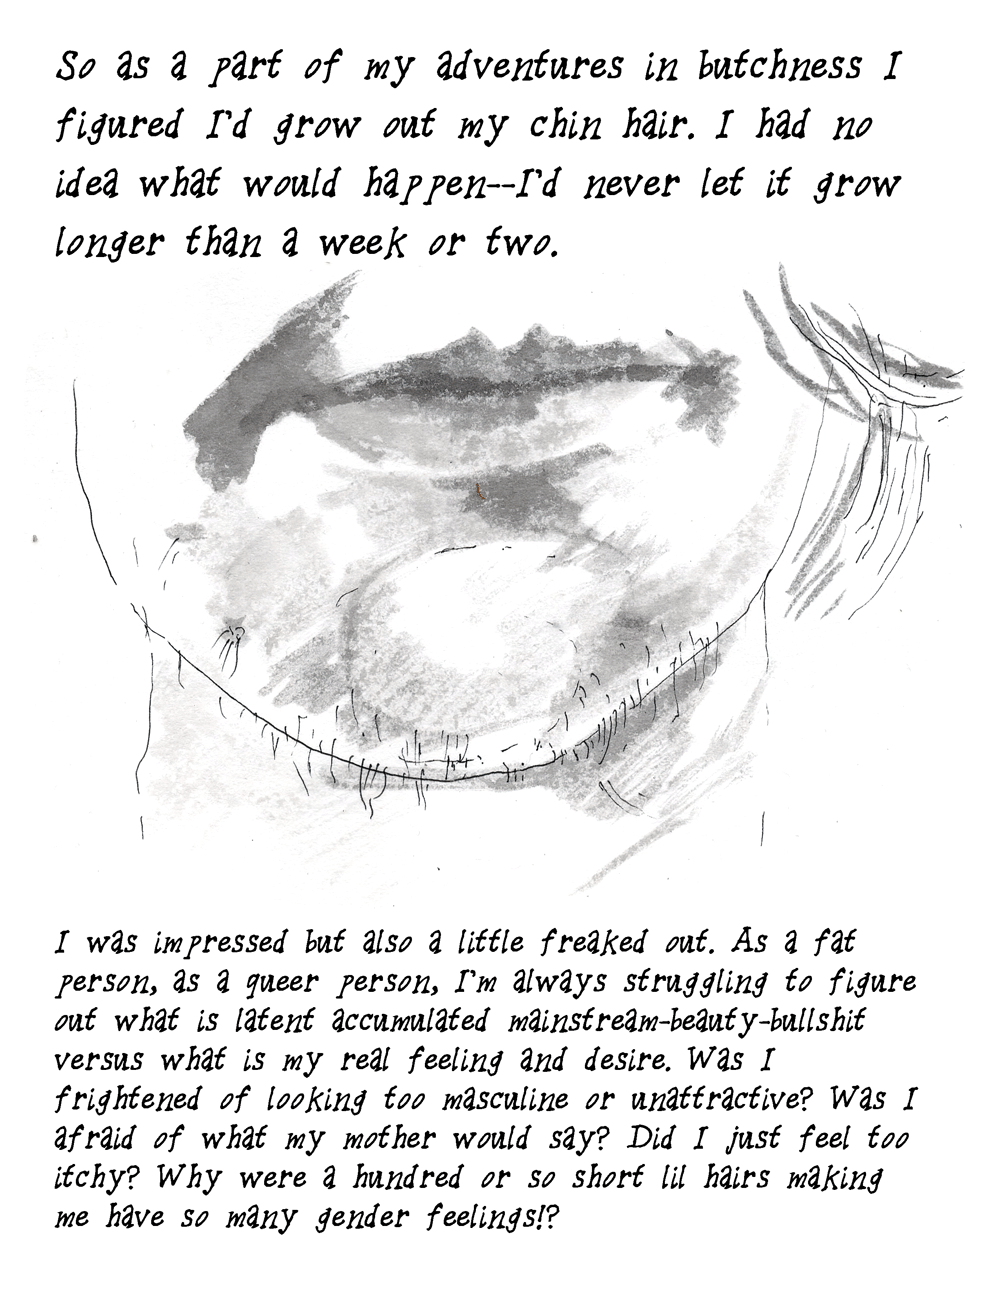 So as a part of my adventures in butchness I
figured I'd grow out my chin hair. I had no
idea what would happen--I'd never let it grow
longer than a week or two.
I was impressed but also a little freaked out. As a fat
person, as a queer person, I'm always struggling to figure
out what is latent accumulated mainstream-beauty-bullshit
versus what is my real feeling and desire. Was I
frightened of looking too masculine or unattractive? Was I
afraid of what my mother would say? Did I just feel too
itchy? Why were a hundred or so short lil hairs making
me have so many gender feelings!?